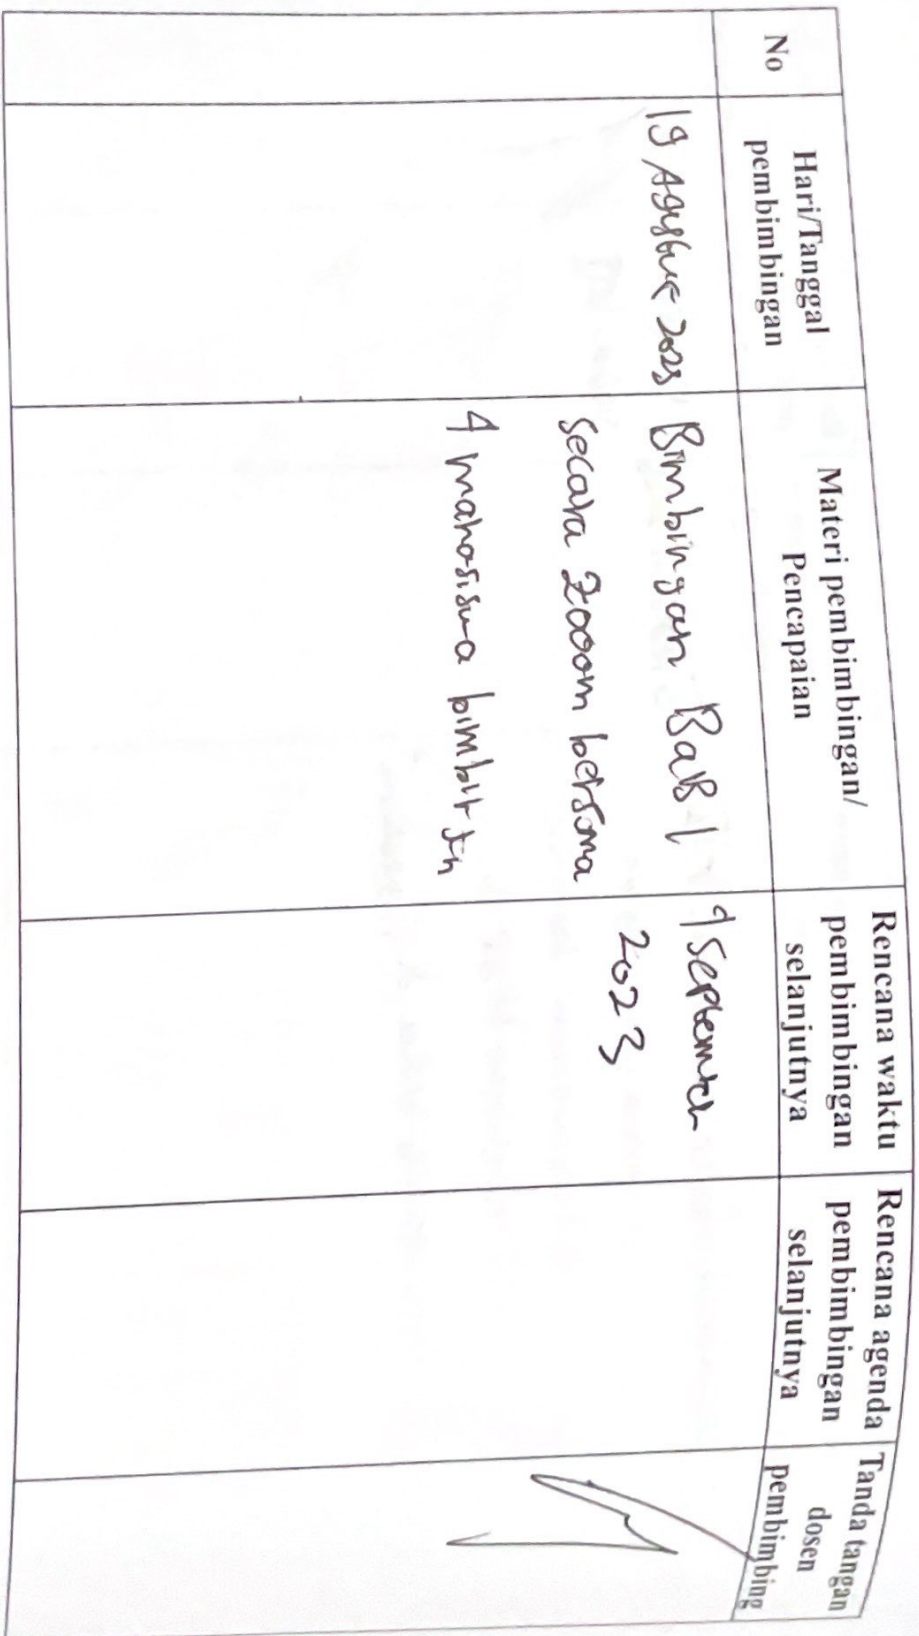 No
Hari/Tanggal
pembimbingan
Materi pembimbingan/
Pencapaian
Rencana waktu
pembimbingan
selanjutnya
Rencana agenda
pembimbingan
selanjutnya
Tanda tangan
dosen
pembimbing
19 Agustus 2023
Bimbingan BaB 1
secara Zooom bersama
4 mahasiswa
9 September
2023